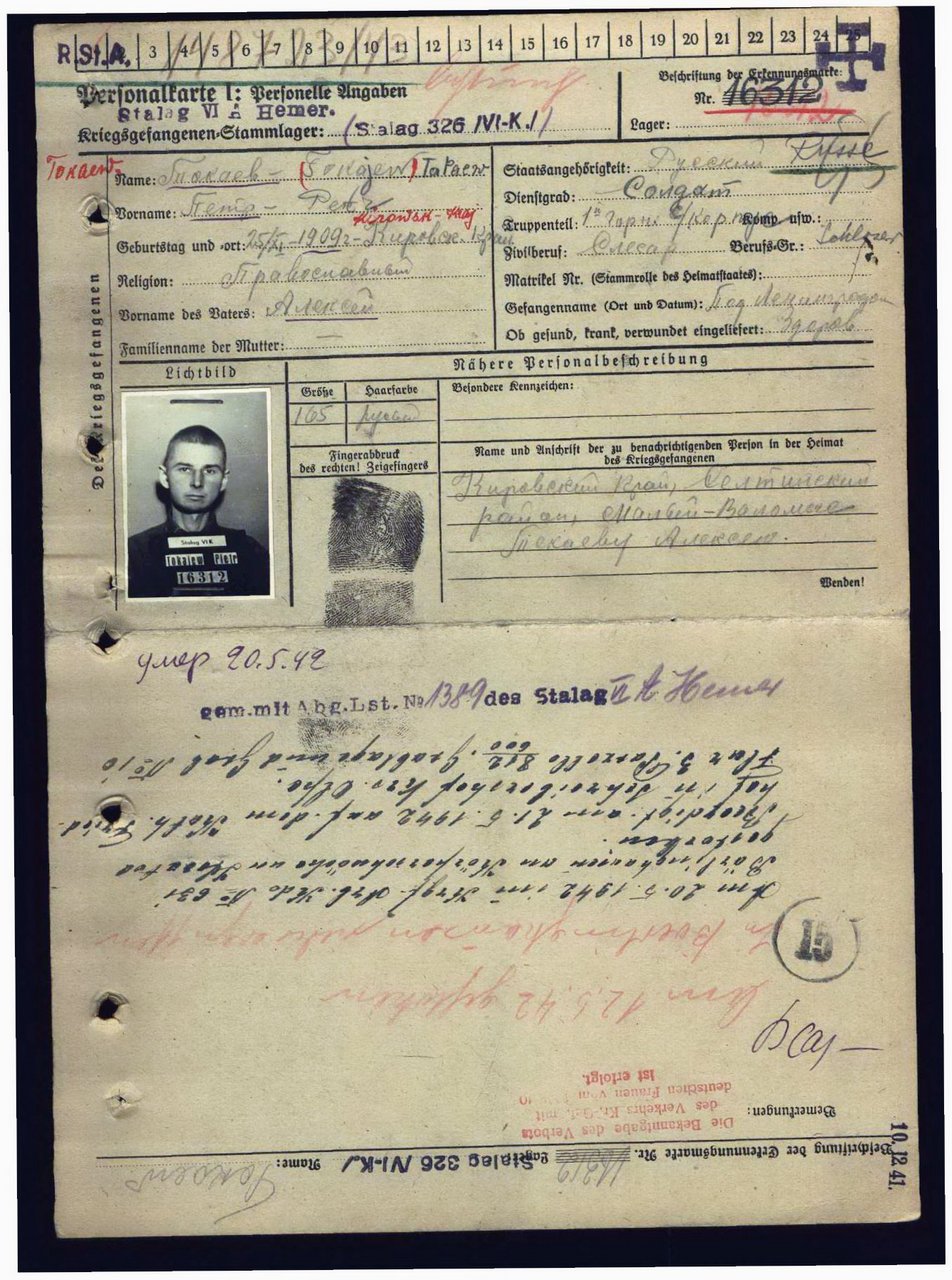 R.St.A. 3 4 5 6 7 8 9 10 11 12 13 14 15 16 17 18 19 20 21 22 23 24 25
Personalkarte I: Personelle Angaben
Stalag VI A Hemer.
Kriegsgefangenen-Stammlager: (Stalag 326 /VI-K./)
Beschriftung der Erkennungsmarke:
Nr. 16312
Lager:
Токаев
Name: Токаев (Tokajew) Takaew
Vorname: Петр
Geburtstag und -ort: 25/XI 1909г. Кировск. Край
Religion: Православный
Vorname des Vaters: Алексей
Familienname der Mutter: —
Staatsangehörigkeit: Русский Russe
Dienstgrad: Солдат
Truppenteil: Komp. usw.:
Zivilberuf: Слесар Berufs-Gr.: Schlosser
Matrikel Nr. (Stammrolle des Heimatstaates):
Gefangenname (Ort und Datum): Под Ленинградом
Ob gesund, krank, verwundet eingeliefert: Здоров
Des Kriegsgefangenen
Lichtbild
Nähere Personalbeschreibung
Größe Haarfarbe
165 русый
Besondere Kennzeichen:
Fingerabdruck
des rechten! Zeigefingers
Name und Anschrift der zu benachrichtigenden Person in der Heimat
des Kriegsgefangenen
Кировский Край, Селтинский
район, Малый-Валомас
Токаеву Алексею.
Wenden!
Stalag VI K
Tokajew Pietr
16312
умер 20.5.42
gem. mit Abg.Lst. № 1389 des Stalag VI A Hemer
Am 20.5.1942 im Krgf. Arb. Kdo № 631
Börlinghausen an Körperschwäche
gestorben.
Beerdigt am 21.5.1942 auf dem Kath. Fried-
hof in Schreibershof Krs. Olpe.
Flur 3, Parzelle 812/600, Grablage und Grab № 10
15
Am 12.5.42
Bemerkungen:
Die Bekanntgabe des Verbots
des Verkehrs Kr.-Gef. mit
deutschen Frauen vom
ist erfolgt.
10.12.41.
Beschriftung der Erkennungsmarke Nr. 16312
Lager: Stalag 326 /VI-K./
Name: Токаев